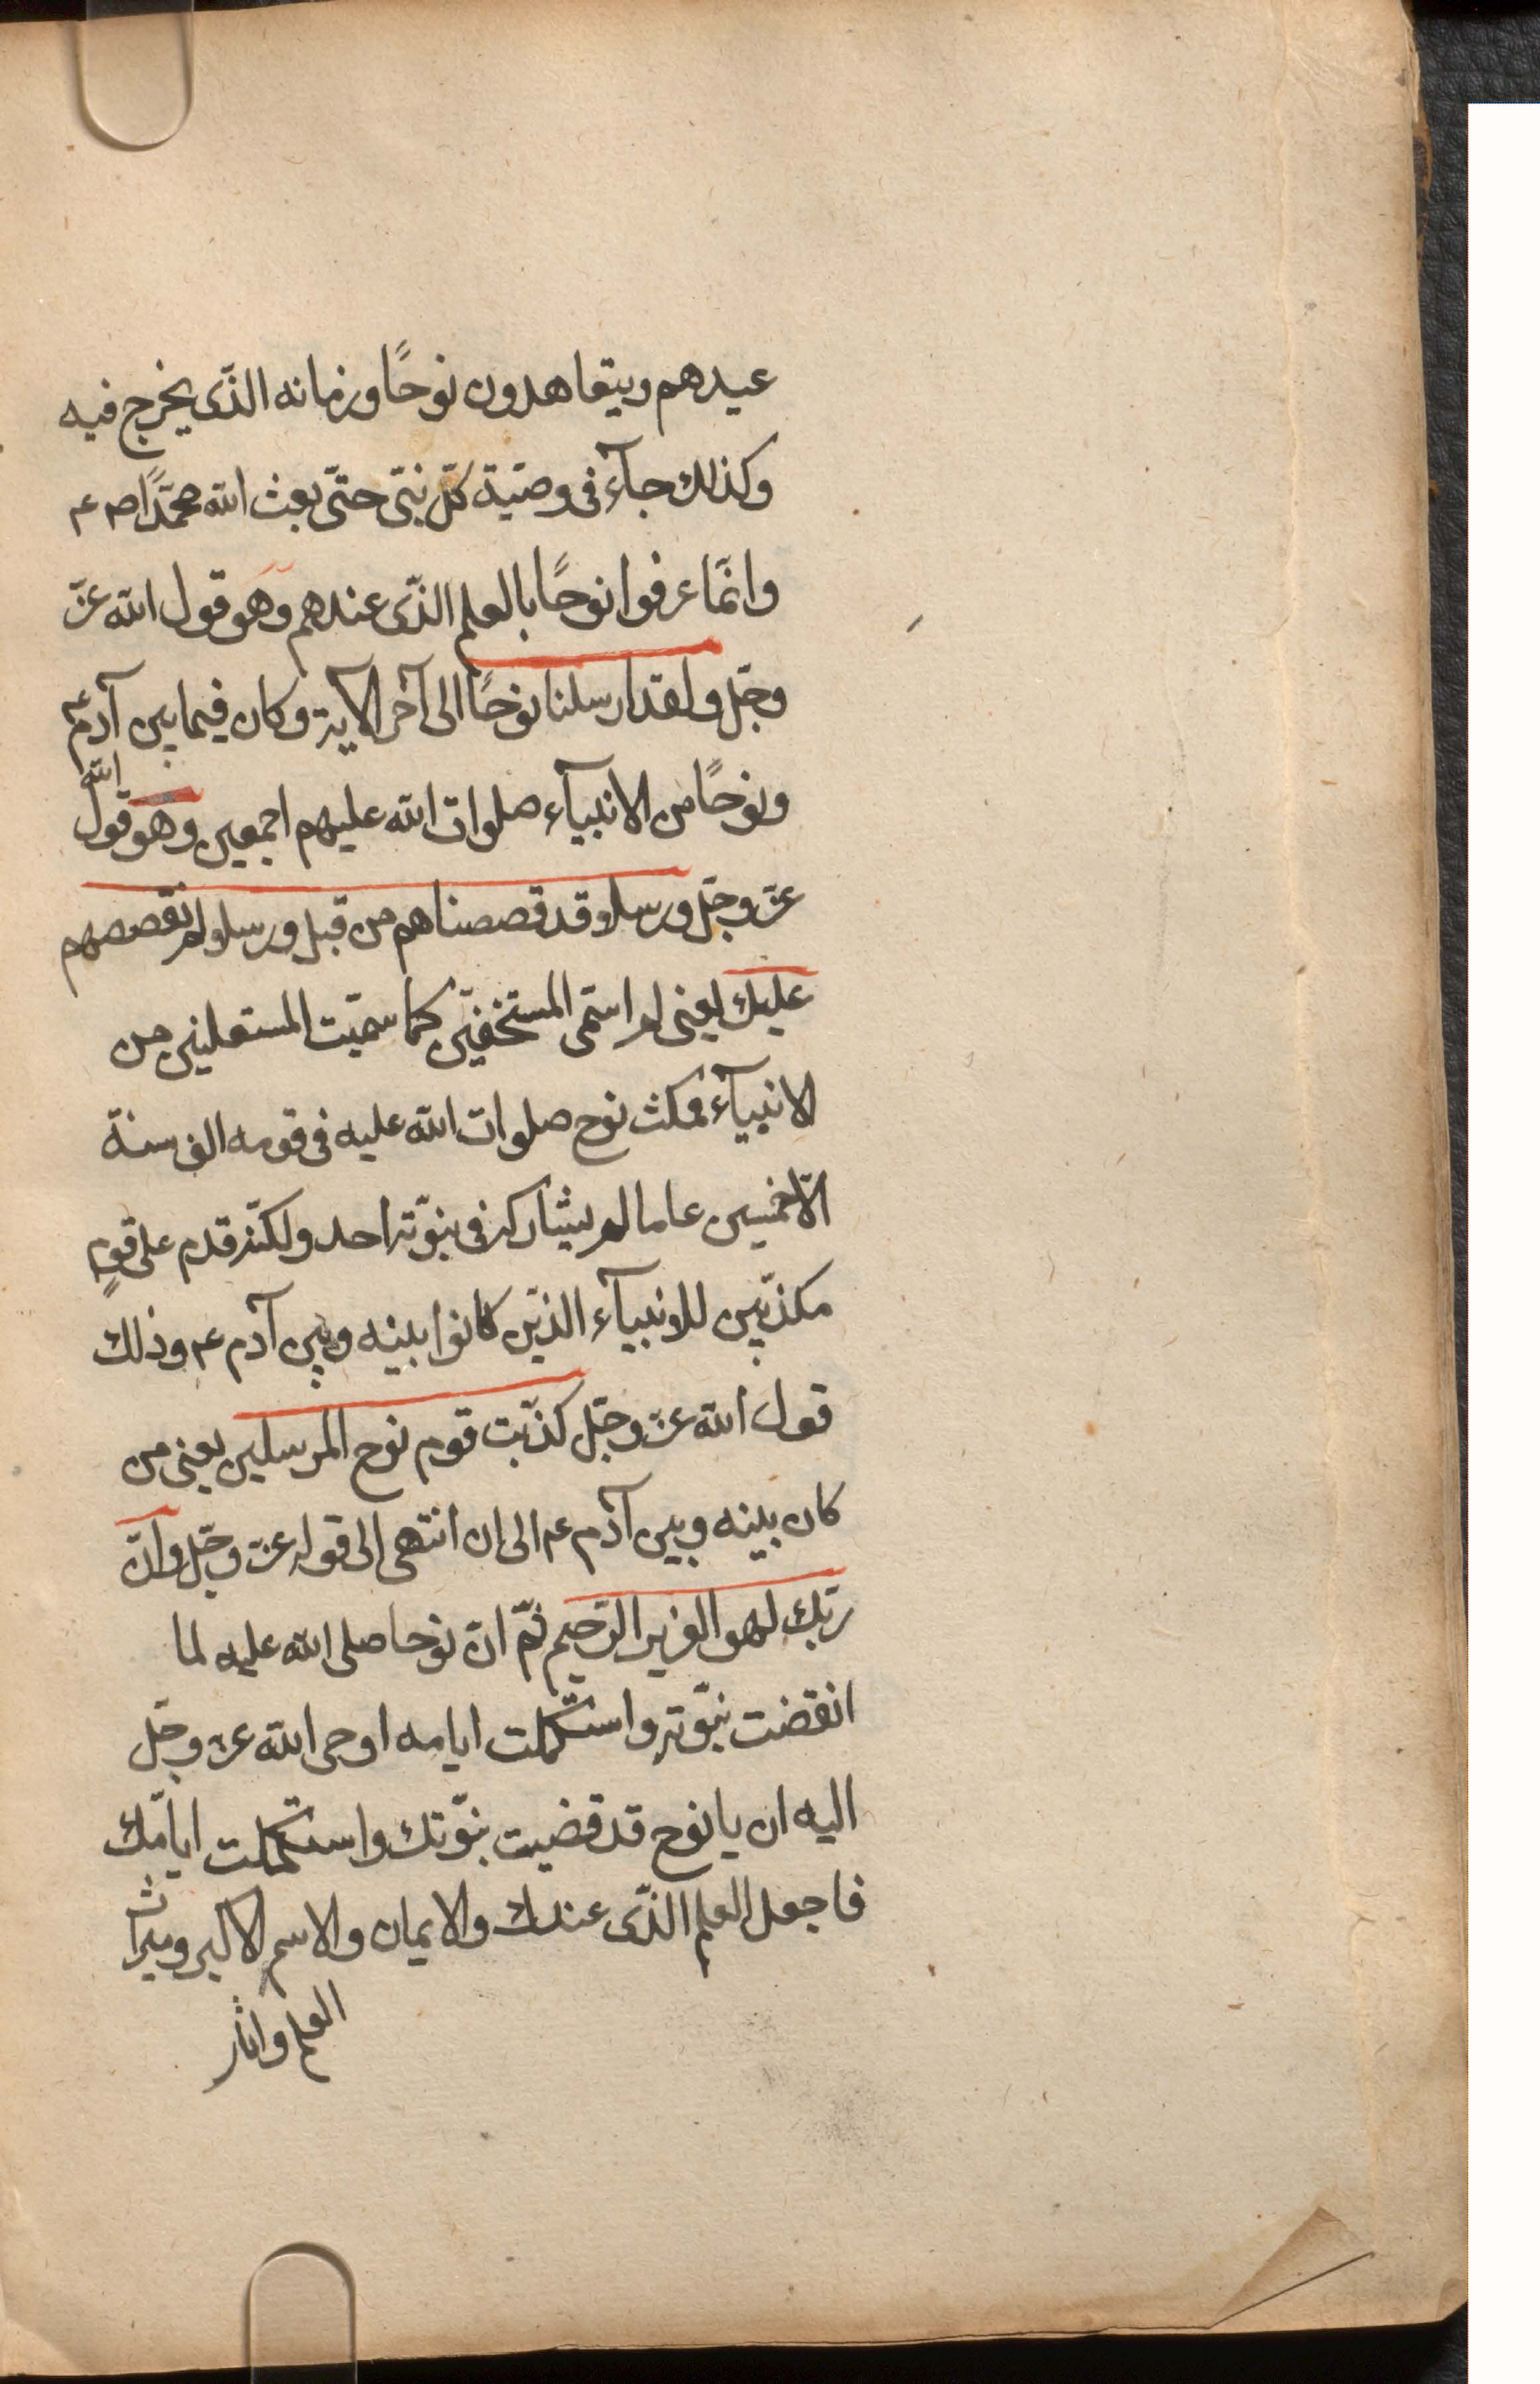 عيدهم ويتعاهدون نوحًا وزمانه الذّى يخرج فيه
وكذلك جآء فى وصيّة كلّ نبىّ حتّى بعث الله محمّدًا ص ع
وانّما عرفوا نوحًا بالعلم الذّى عندهم وهو قول الله عزّ
وجلّ ولقد ارسلنا نوحًا الى آخر الآية وكان فيما بين آدم ع
ونوحًا من الانبيآء صلوات الله عليهم اجمعين وهو قول الله
عزّ وجلّ ورسلا قد قصصناهم من قبل ورسلا لم نقصصهم
عليك يعنى لم اسمّى المستخفيّن كما سمّيت المستعلنين من
الانبيآء فمكث نوح صلوات الله عليه فى قومه الف سنة
الّا خمسين عاما لم يشاركه فى نبوّته احد ولكنّه قدم على قومٍ
مكذّبين للانبيآء الذيّن كانوا بينه وبين آدم ع وذلك
قول الله عزّ وجلّ كذّبت قوم نوح المرسلين يعنى من
كان بينه وبين آدم ع الى ان انتهى الى قوله عزّ وجلّ وانّ
ربّك لهو العزيز الرّحيم ثمّ انّ نوحا صلى الله عليه لما
انقضت نبوّته واستكملت ايامه اوحى الله عزّ وجلّ
اليه ان يا نوح قد قضيت نبوّتك واستكملت ايامّك
فاجعل العلم الذّى عندك والايمان والاسم الاكبر وميراث
العلم واثار